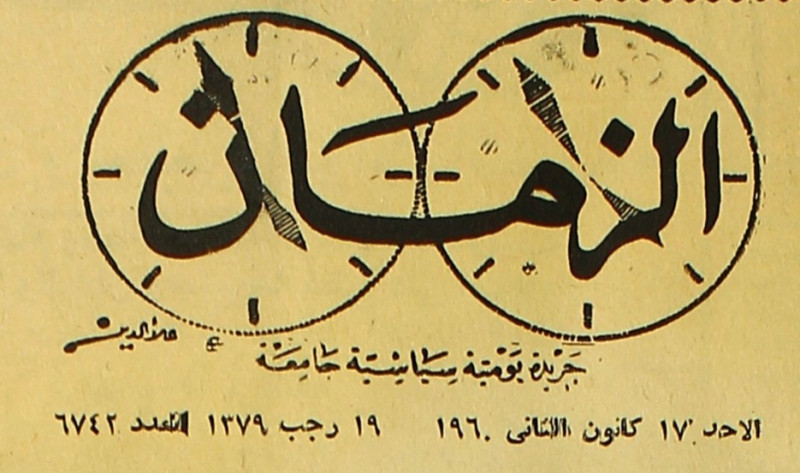 الزمان
علاءالدين
جريدة يومية سياسية جامعة
الاحد ١٧ كانون الثانى ١٩٦٠ ١٩ رجب ١٣٧٩ العدد ٦٧٤٢